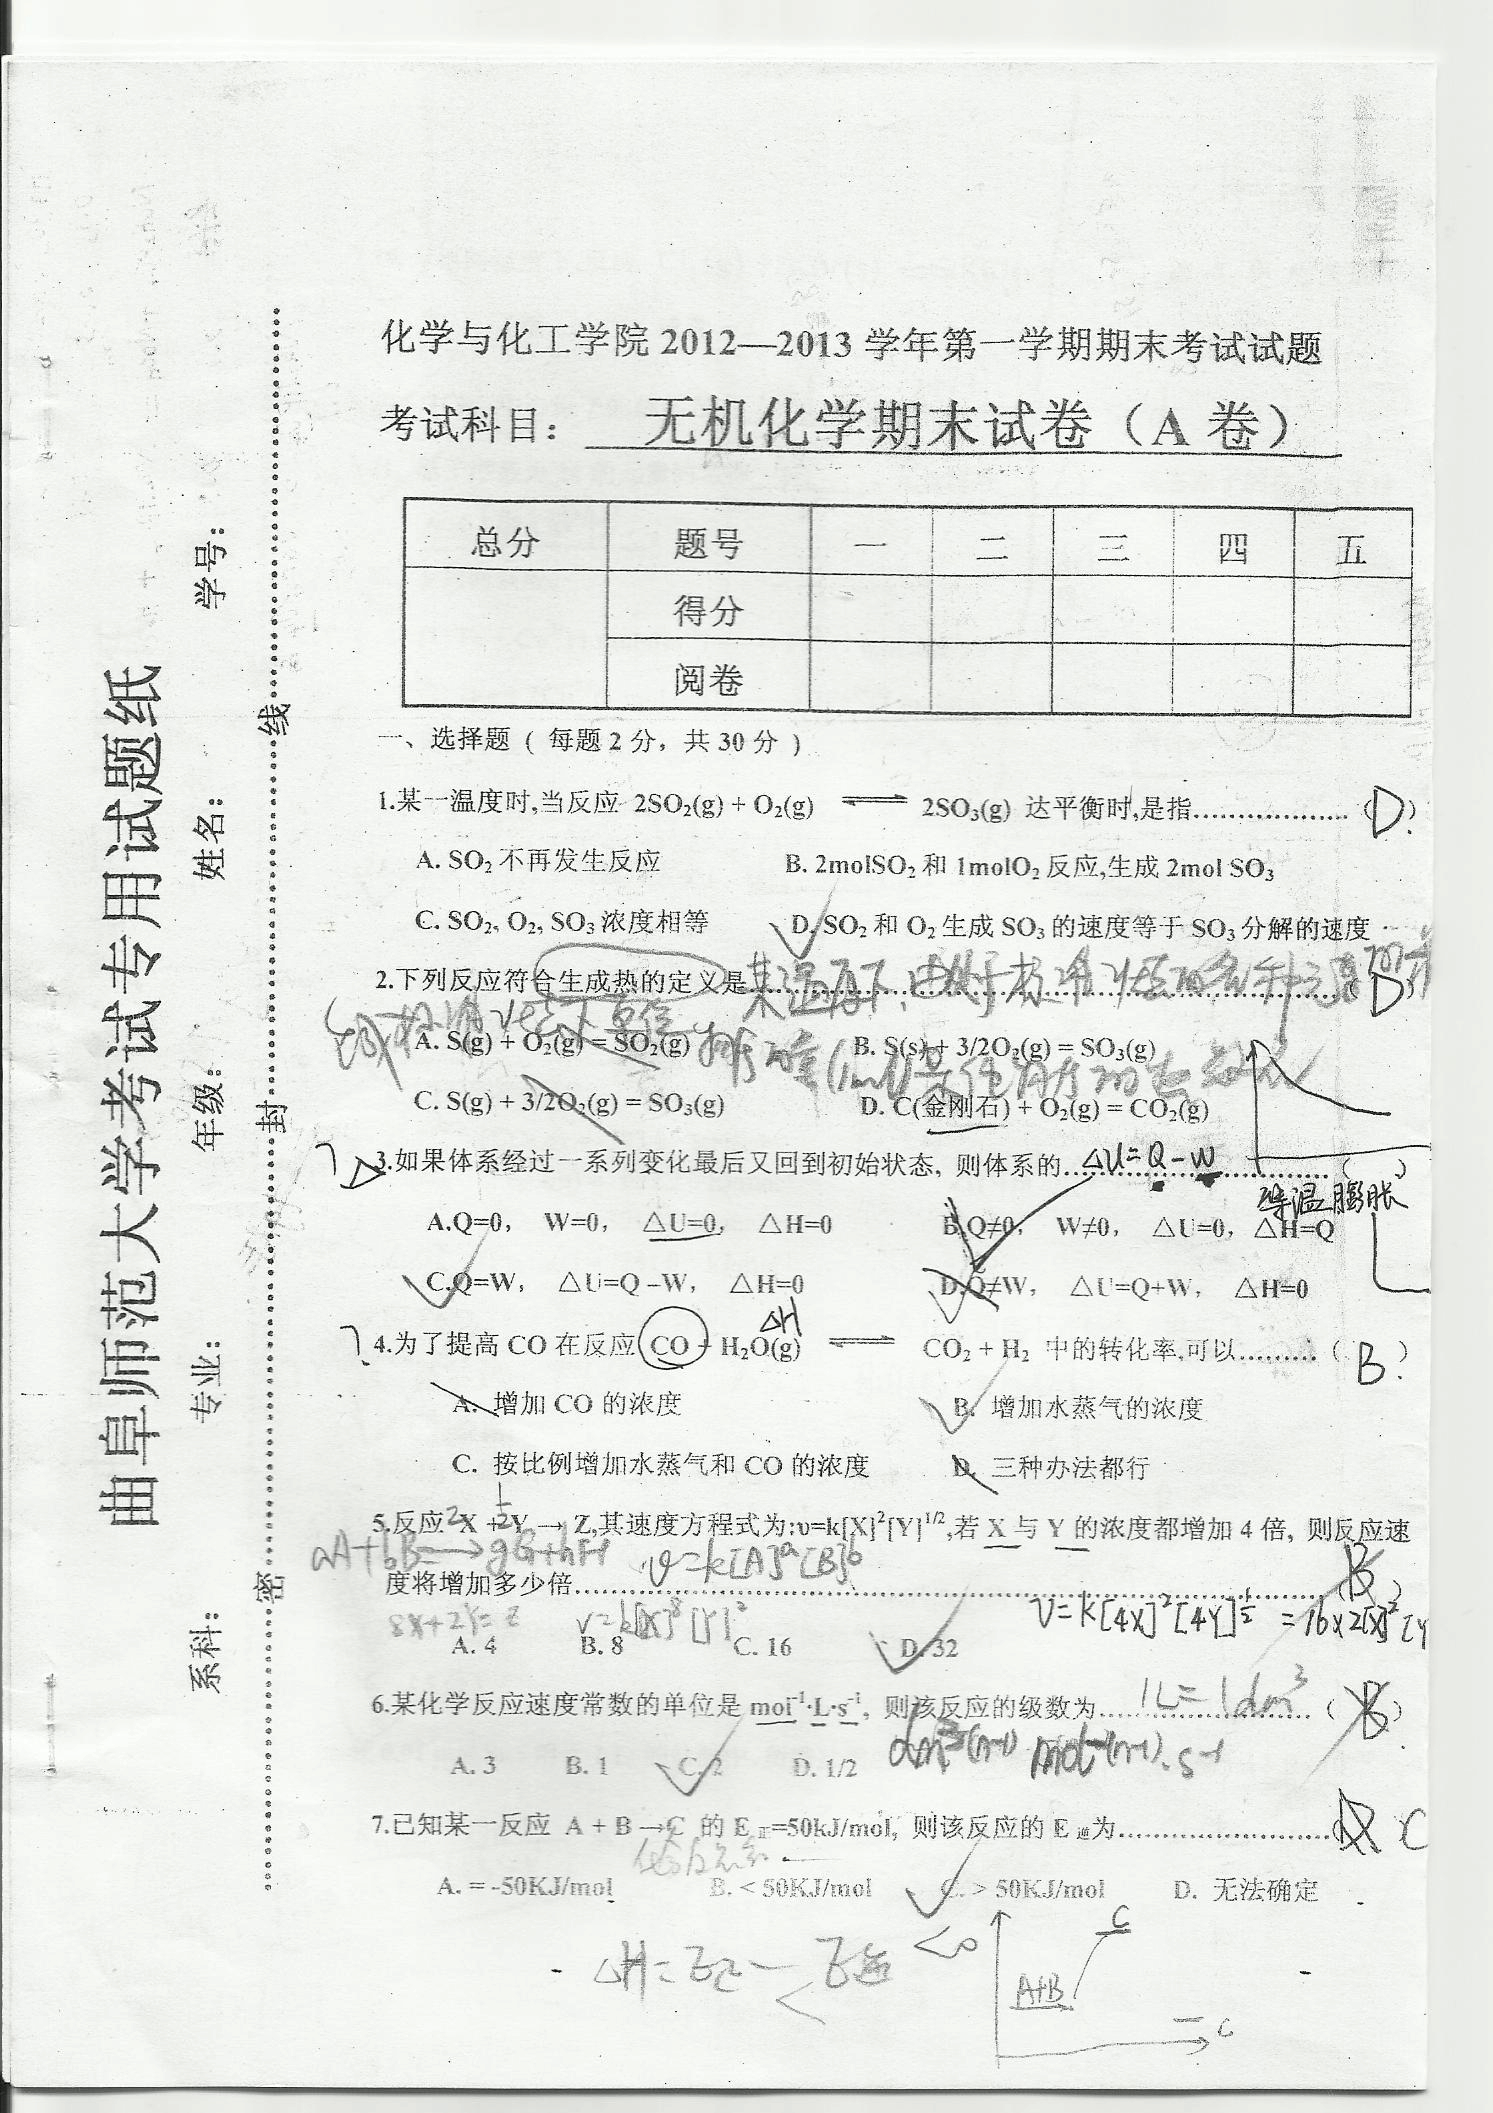 曲阜师范大学考试专用试题纸
系科： 专业： 年级： 姓名： 学号：
密 封 线
化学与化工学院 2012—2013 学年第一学期期末考试试题
考试科目： 无机化学期末试卷（A 卷）
总分 题号 一 二 三 四 五
得分
阅卷
一、选择题 ( 每题 2 分，共 30 分 )
1.某一温度时,当反应 2SO₂(g) + O₂(g) ⇌ 2SO₃(g) 达平衡时,是指………………（D）
A. SO₂ 不再发生反应 B. 2molSO₂ 和 1molO₂ 反应,生成 2mol SO₃
C. SO₂, O₂, SO₃ 浓度相等 D. SO₂ 和 O₂ 生成 SO₃ 的速度等于 SO₃ 分解的速度
2.下列反应符合生成热的定义是………………（D）
A. S(g) + O₂(g) = SO₂(g) B. S(s) + 3/2O₂(g) = SO₃(g)
C. S(g) + 3/2O₂(g) = SO₃(g) D. C(金刚石) + O₂(g) = CO₂(g)
3.如果体系经过一系列变化最后又回到初始状态, 则体系的………………（ ）
△U=Q-W
等温膨胀
A.Q=0， W=0， △U=0， △H=0 B.Q≠0， W≠0， △U=0，△H=Q
C.Q=W， △U=Q –W， △H=0 D.Q≠W， △U=Q+W， △H=0
△H
4.为了提高 CO 在反应 CO + H₂O(g) ⇌ CO₂ + H₂ 中的转化率,可以………（B）
A. 增加 CO 的浓度 B. 增加水蒸气的浓度
C. 按比例增加水蒸气和 CO 的浓度 D. 三种办法都行
5.反应 2X + ½Y → Z,其速度方程式为:υ=k[X]²[Y]^1/2,若 X 与 Y 的浓度都增加 4 倍, 则反应速
aA+bB→gG+hH v=k[A]^a[B]^b
度将增加多少倍………………（B）
8X+2Y=Z v=k[X]⁸[Y]² V=k[4X]²[4Y]^½ =16×2[X]²[Y
A. 4 B. 8 C. 16 D. 32
6.某化学反应速度常数的单位是 mol⁻¹·L·s⁻¹, 则该反应的级数为………………（B）
1L=1dm³
dm³⁽ⁿ⁻¹⁾ mol⁻⁽ⁿ⁻¹⁾·s⁻¹
A. 3 B. 1 C. 2 D. 1/2
7.已知某一反应 A + B → C 的 E正=50kJ/mol, 则该反应的 E逆为………………（A） C
A. = -50KJ/mol B. < 50KJ/mol C. > 50KJ/mol D. 无法确定
△H=E正-E逆 <0
<
C
A+B
C